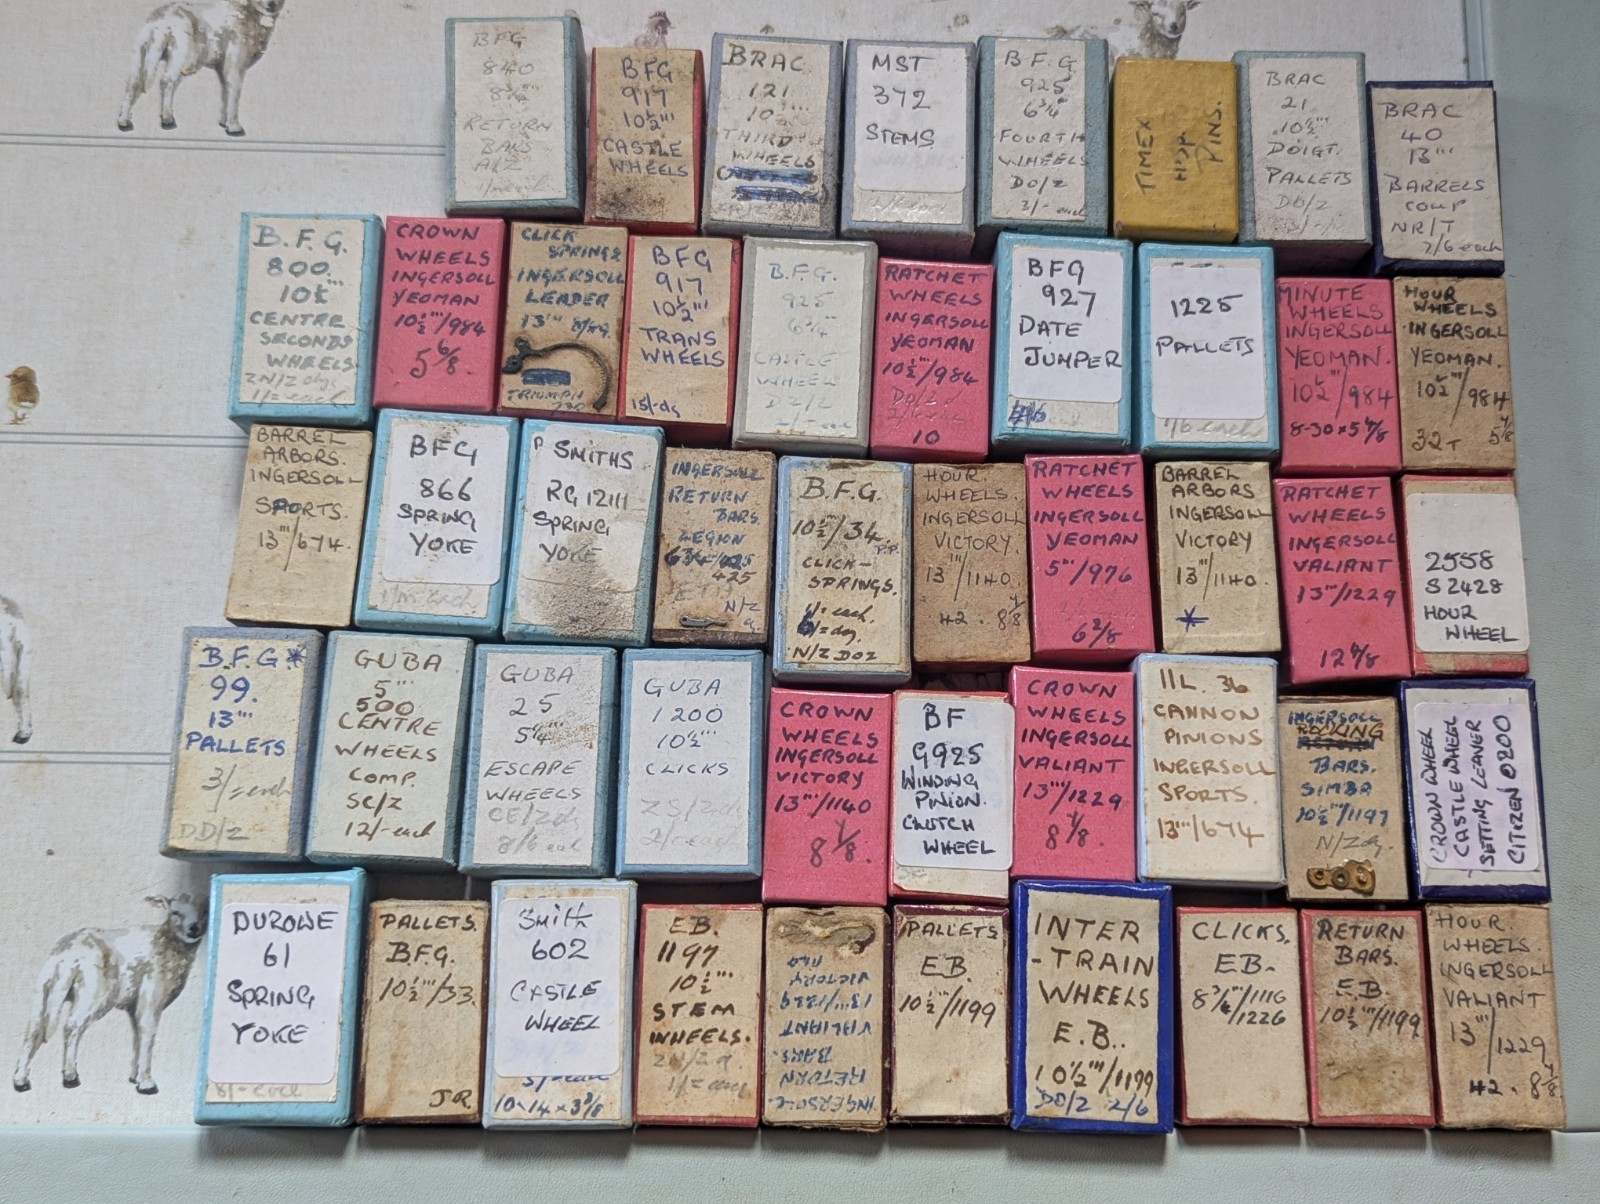 BFG
840
8¾'''
RETURN
BARS
BFG
917
10½'''
CASTLE
WHEELS
BRAC
121
10½
THIRD
WHEELS
MST
372
STEMS
B.F.G
925
6¾'''
FOURTH
WHEELS
DO/Z
3/- each
TIMEX
PINS.
BRAC
21
10½'''
DOIGT.
PALLETS
DO/Z
BRAC
40
13'''
BARRELS
COMP
NR/T
7/6 each
B.F.G.
800.
10½'''
CENTRE
SECONDS
WHEELS
1/= each
CROWN
WHEELS
INGERSOLL
YEOMAN
10½'''/984
5 6/8.
CLICK
SPRINGS
INGERSOLL
LEADER
13'''
TRIUMPH
BFG
917
10½'''
TRANS
WHEELS
15/- dz
B.F.G.
925
6¾'''
CASTLE
WHEEL
RATCHET
WHEELS
INGERSOLL
YEOMAN
10½'''/984
10
BFG
927
DATE
JUMPER
1225
PALLETS
/6 each
MINUTE
WHEELS
INGERSOLL
YEOMAN.
10½'''/984
8-30×5 4/8
HOUR
WHEELS
INGERSOLL
YEOMAN.
10½'''/984
32T
BARREL
ARBORS.
INGERSOLL
SPORTS.
13'''/674.
BFG
866
SPRING
YOKE
SMITHS
RG 12111
SPRING
YOKE
INGERSOLL
RETURN
BARS.
LEGION
425
N/Z
B.F.G.
10½'''/34.
P.P.
CLICK-
SPRINGS.
1/= each.
N/Z DOZ
HOUR.
WHEELS.
INGERSOLL
VICTORY.
13'''/1140.
42. 8 4/8
RATCHET
WHEELS
INGERSOLL
YEOMAN
5'''/976
6 2/8
BARREL
ARBORS
INGERSOLL
VICTORY
13'''/1140.
*
RATCHET
WHEELS
INGERSOLL
VALIANT
13'''/1229
12 4/8
2558
S2428
HOUR
WHEEL
B.F.G *
99.
13'''
PALLETS
3/= each
DD/Z
GUBA
5'''
500
CENTRE
WHEELS
COMP.
SC/Z
12/- each
GUBA
25
5¼'''
ESCAPE
WHEELS
CE/Z dz
8/6 each
GUBA
1200
10½'''
CLICKS
2/- each
CROWN
WHEELS
INGERSOLL
VICTORY
13'''/1140
8 4/8.
BF
G925
WINDING
PINION.
CLUTCH
WHEEL
CROWN
WHEELS
INGERSOLL
VALIANT
13'''/1229
8 4/8.
ILL. 36
CANNON
PINIONS
INGERSOLL
SPORTS.
13'''/674
INGERSOLL
ROCKING
BARS.
SIMBA
10½'''/1197
N/Z dz.
CROWN WHEEL
CASTLE WHEEL
SETTING LEAVER
CITIZEN 0200
DUROWE
61
SPRING
YOKE
8/- each
PALLETS.
B.F.G.
10½'''/33.
J.R.
Smith
602
CASTLE
WHEEL
10-14 × 3 3/8
E.B.
1197
10½'''
STEM
WHEELS.
1/= each
INGERSOLL
RETURN
BARS.
VALIANT
13'''/1229
VICTORY
PALLETS
E.B.
10½'''/1199
INTER
-TRAIN
WHEELS
E.B..
10½'''/1199
DO/Z 2/6
CLICKS.
E.B.
8¾'''/1116
/1226
RETURN
BARS.
E.B.
10½'''/1199
HOUR.
WHEELS.
INGERSOLL
VALIANT
13'''/1229
42. 8 4/8